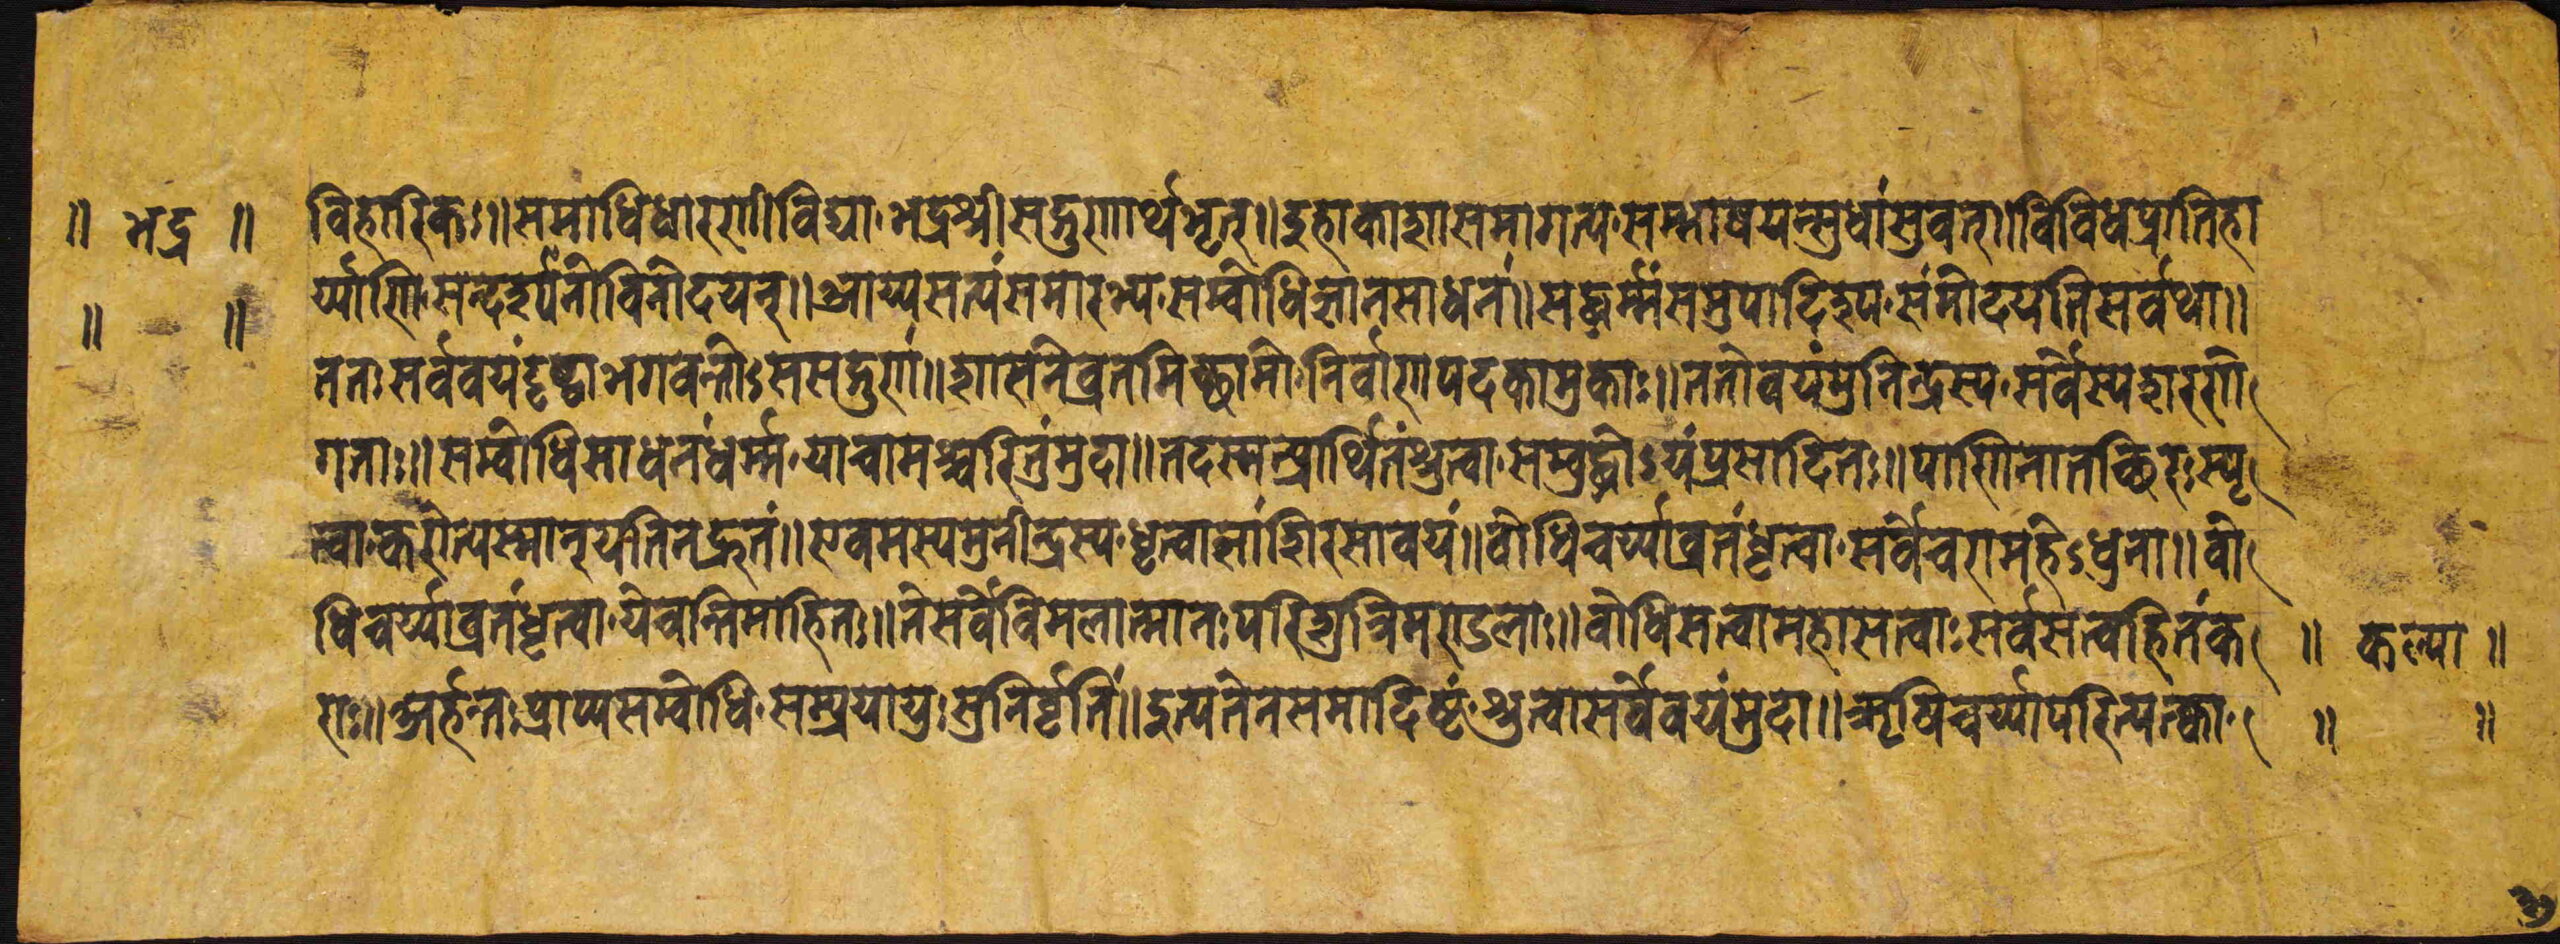 ॥ भद्र ॥ विहारिकः॥समाधिधारणीविद्या·भद्रश्रीसद्गुणार्थभृत्॥इहाकाशासमागत्य·सम्भाषयन्सुधांसुवत्॥विविधप्रातिहा
॥ ॥ र्य्याणि·सन्दर्श्यनोविनोदयन्॥आय्यसत्यंसमारभ्य·सम्बोधिज्ञानसाधनं॥सद्धर्म्मंसमुपादिश्य·संमोदयतिसर्वथा॥
ततःसर्ववयंदृष्ट्वाभगवन्तोऽससद्गुणां॥शासनेव्रतमिच्छामो·निर्वाणपदकामुकाः॥ततोवयंमुनिन्द्रस्य·सर्वेस्यशरणे
गताः॥सम्बोधिसाधनंधर्म्म·याचामश्चरितुंमुदा॥तदस्मत्प्रार्थितंश्रुत्वा·सम्बुद्धोऽयंप्रसादितः॥पाणिनातच्छिरःस्पृ
त्वा·करोत्यस्मान्यतिनद्रुतं॥एवमस्यमुनीन्द्रस्य·धृत्वाज्ञांशिरसावयं॥बोधिचर्य्याव्रतंधृत्वा·सर्वेचरामहेऽधुना॥बो
धिचर्य्याव्रतंधृत्वा·येचन्तिमाहितः॥तेसर्वेविमलात्मानःपरिशुत्रिमण्डलाः॥बोधिसत्वामहासत्वाःसर्वसत्वहितंक ॥ कल्पा ॥
राः॥अर्हन्तःप्राप्यसम्बोधि·सम्प्रयायुःसुनिर्वृतिं॥इत्यतेनसमादिष्टं·श्रुत्वासर्वेवयंमुदा॥ऋषिचर्य्यापरित्यत्का· ॥ ॥